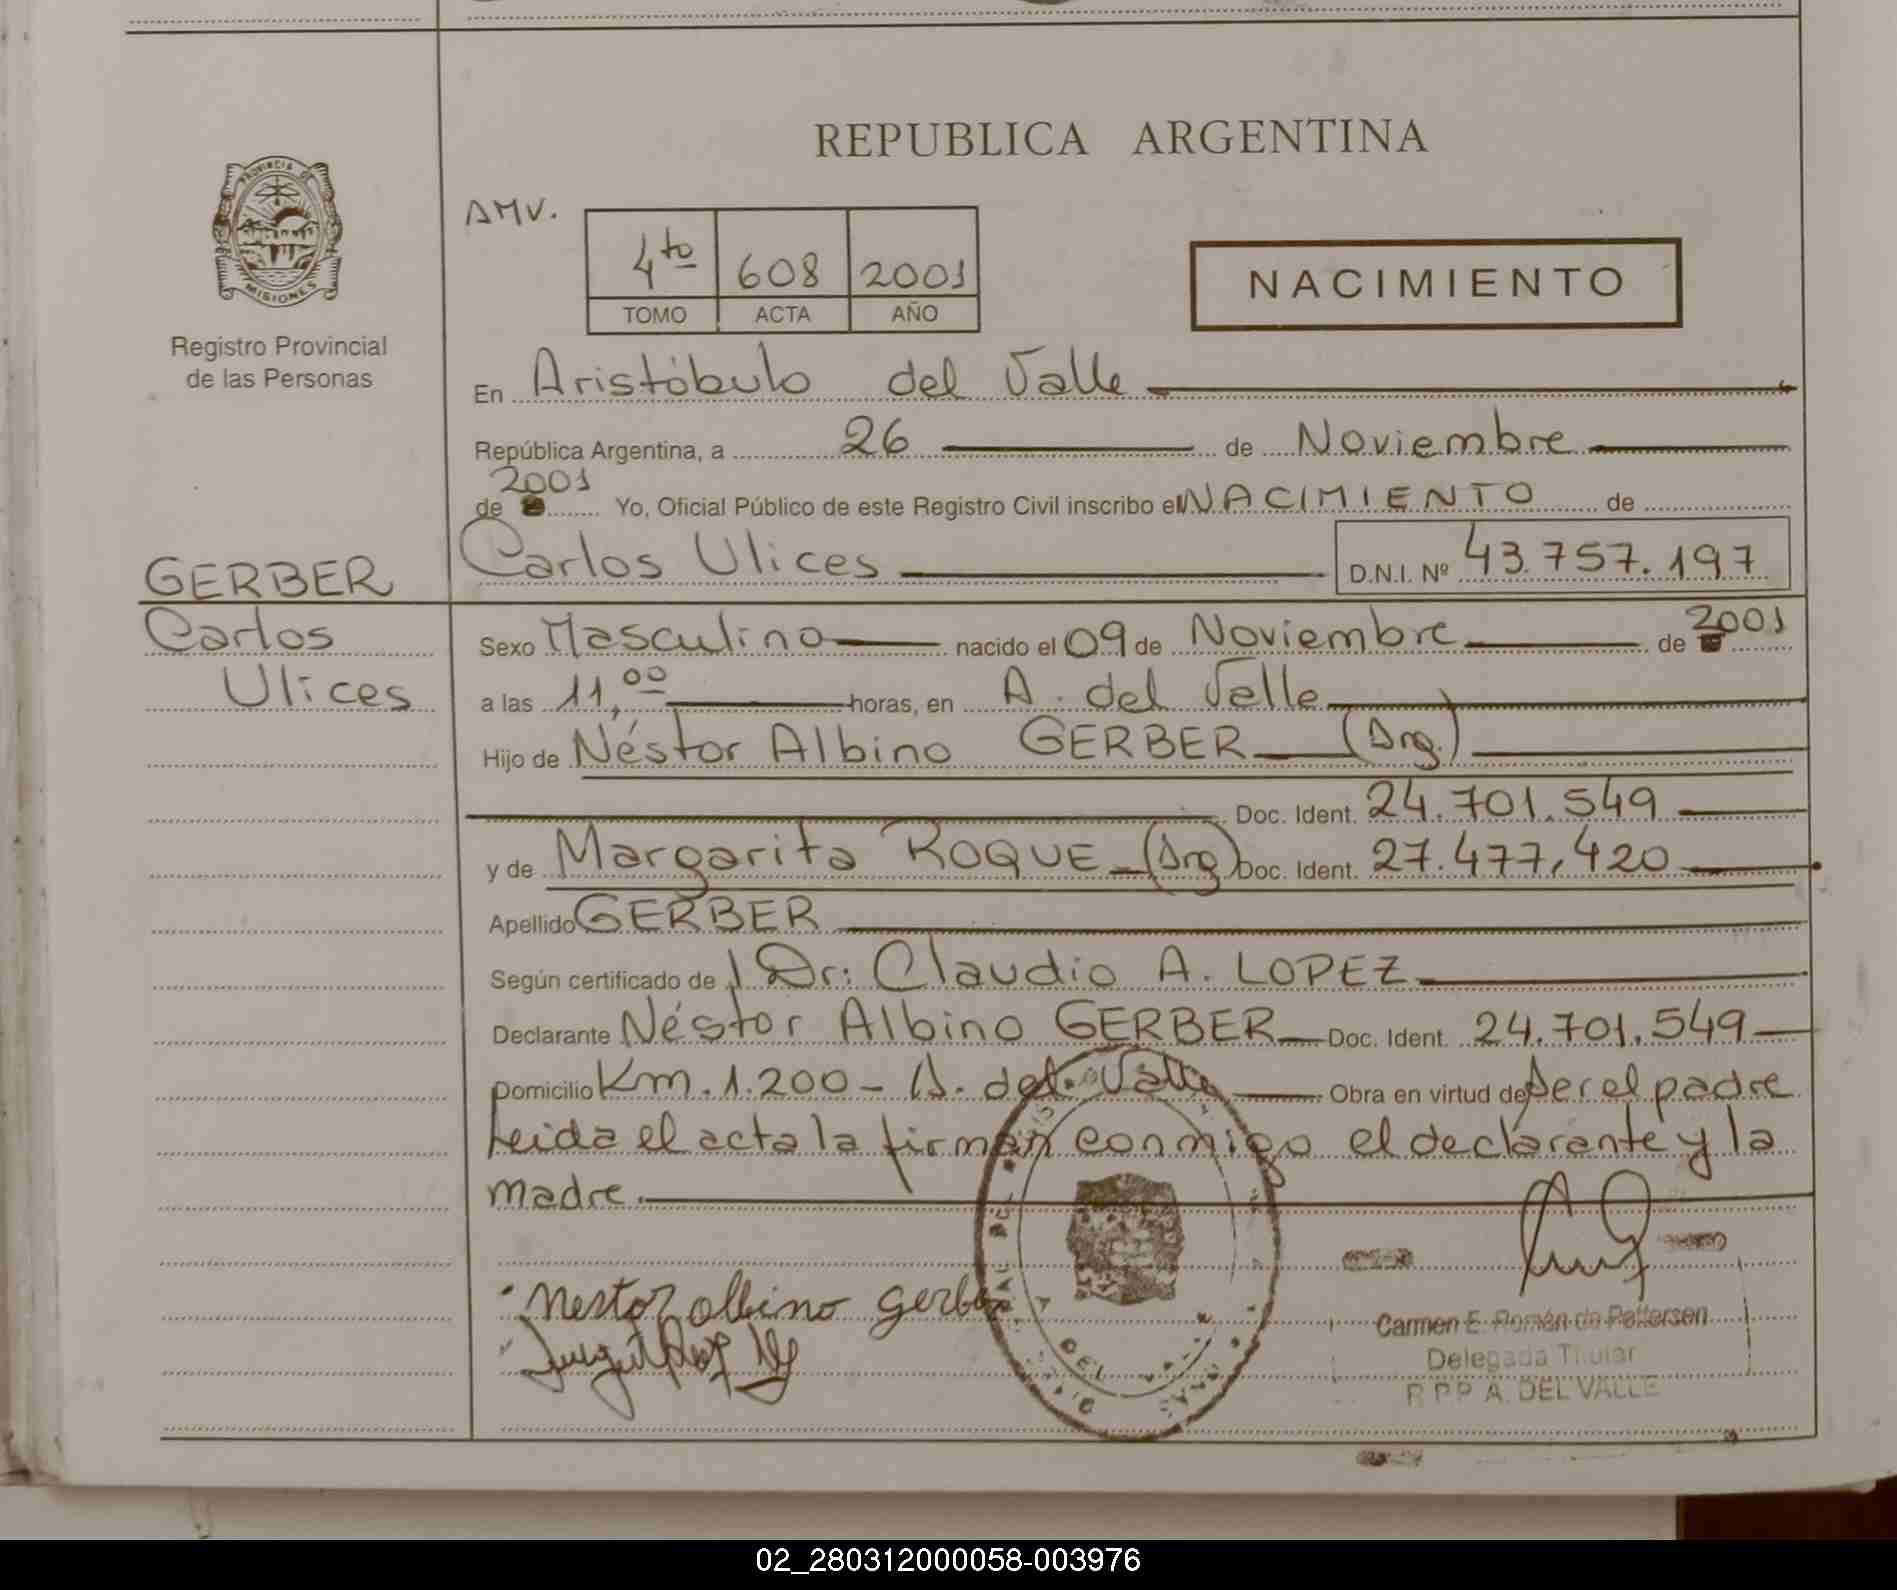 REPUBLICA ARGENTINA
PROVINCIA DE
MISIONES
Registro Provincial
de las Personas
AMV.
4to 608 2001
TOMO ACTA AÑO
NACIMIENTO
En Aristóbulo del Valle
República Argentina, a 26 de Noviembre
de 2001 Yo, Oficial Público de este Registro Civil inscribo el NACIMIENTO de
Carlos Ulices D.N.I. Nº 43.757.197
GERBER
Carlos
Ulices
Sexo Masculino nacido el 09 de Noviembre de 2001
a las 11,00 horas, en A. del Valle
Hijo de Néstor Albino GERBER (Arg.)
Doc. Ident. 24.701.549
y de Margarita ROQUE (Arg) Doc. Ident. 27.477.420
Apellido GERBER
Según certificado de Dr: Claudio A. LOPEZ
Declarante Néstor Albino GERBER Doc. Ident. 24.701.549
Domicilio Km. 1.200 - A. del Valle Obra en virtud de ser el padre
Leida el acta la firman conmigo el declarante y la
madre.
Nestor albino gerber
Carmen E. Román de Pettersen
Delegada Titular
R.P.P. A. DEL VALLE
02_280312000058-003976